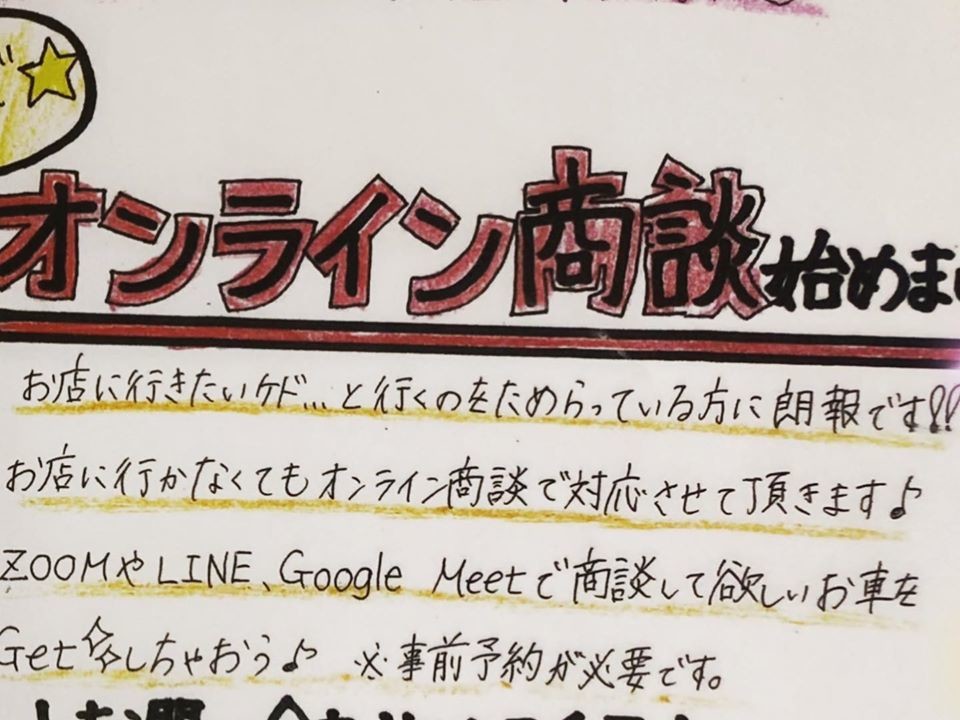 オンライン商談始めま
お店に行きたいケド...と行くのをためらっている方に朗報です!!
お店に行かなくてもオンライン商談で対応させて頂きます♪
ZOOMやLINE、Google Meetで商談して欲しいお車を
Get☆しちゃおう♪ ※事前予約が必要です。